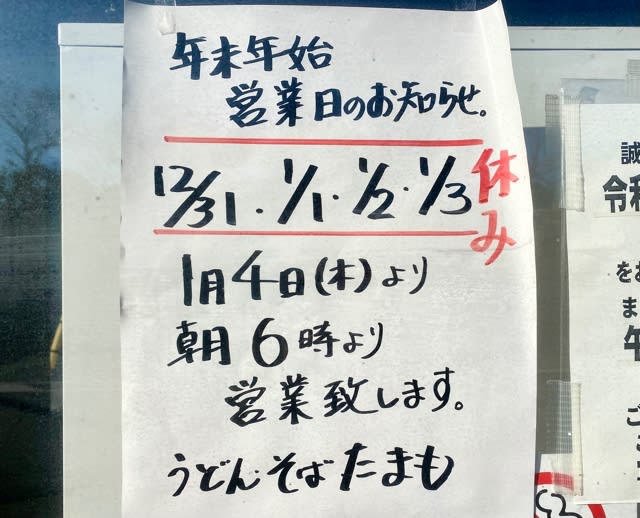 年末年始
営業日のお知らせ。
12/31・1/1・1/2・1/3 休み
1月4日(木)より
朝6時より
営業致します。
うどん・そばたまも
誠
令和
をお
ま
午
ご